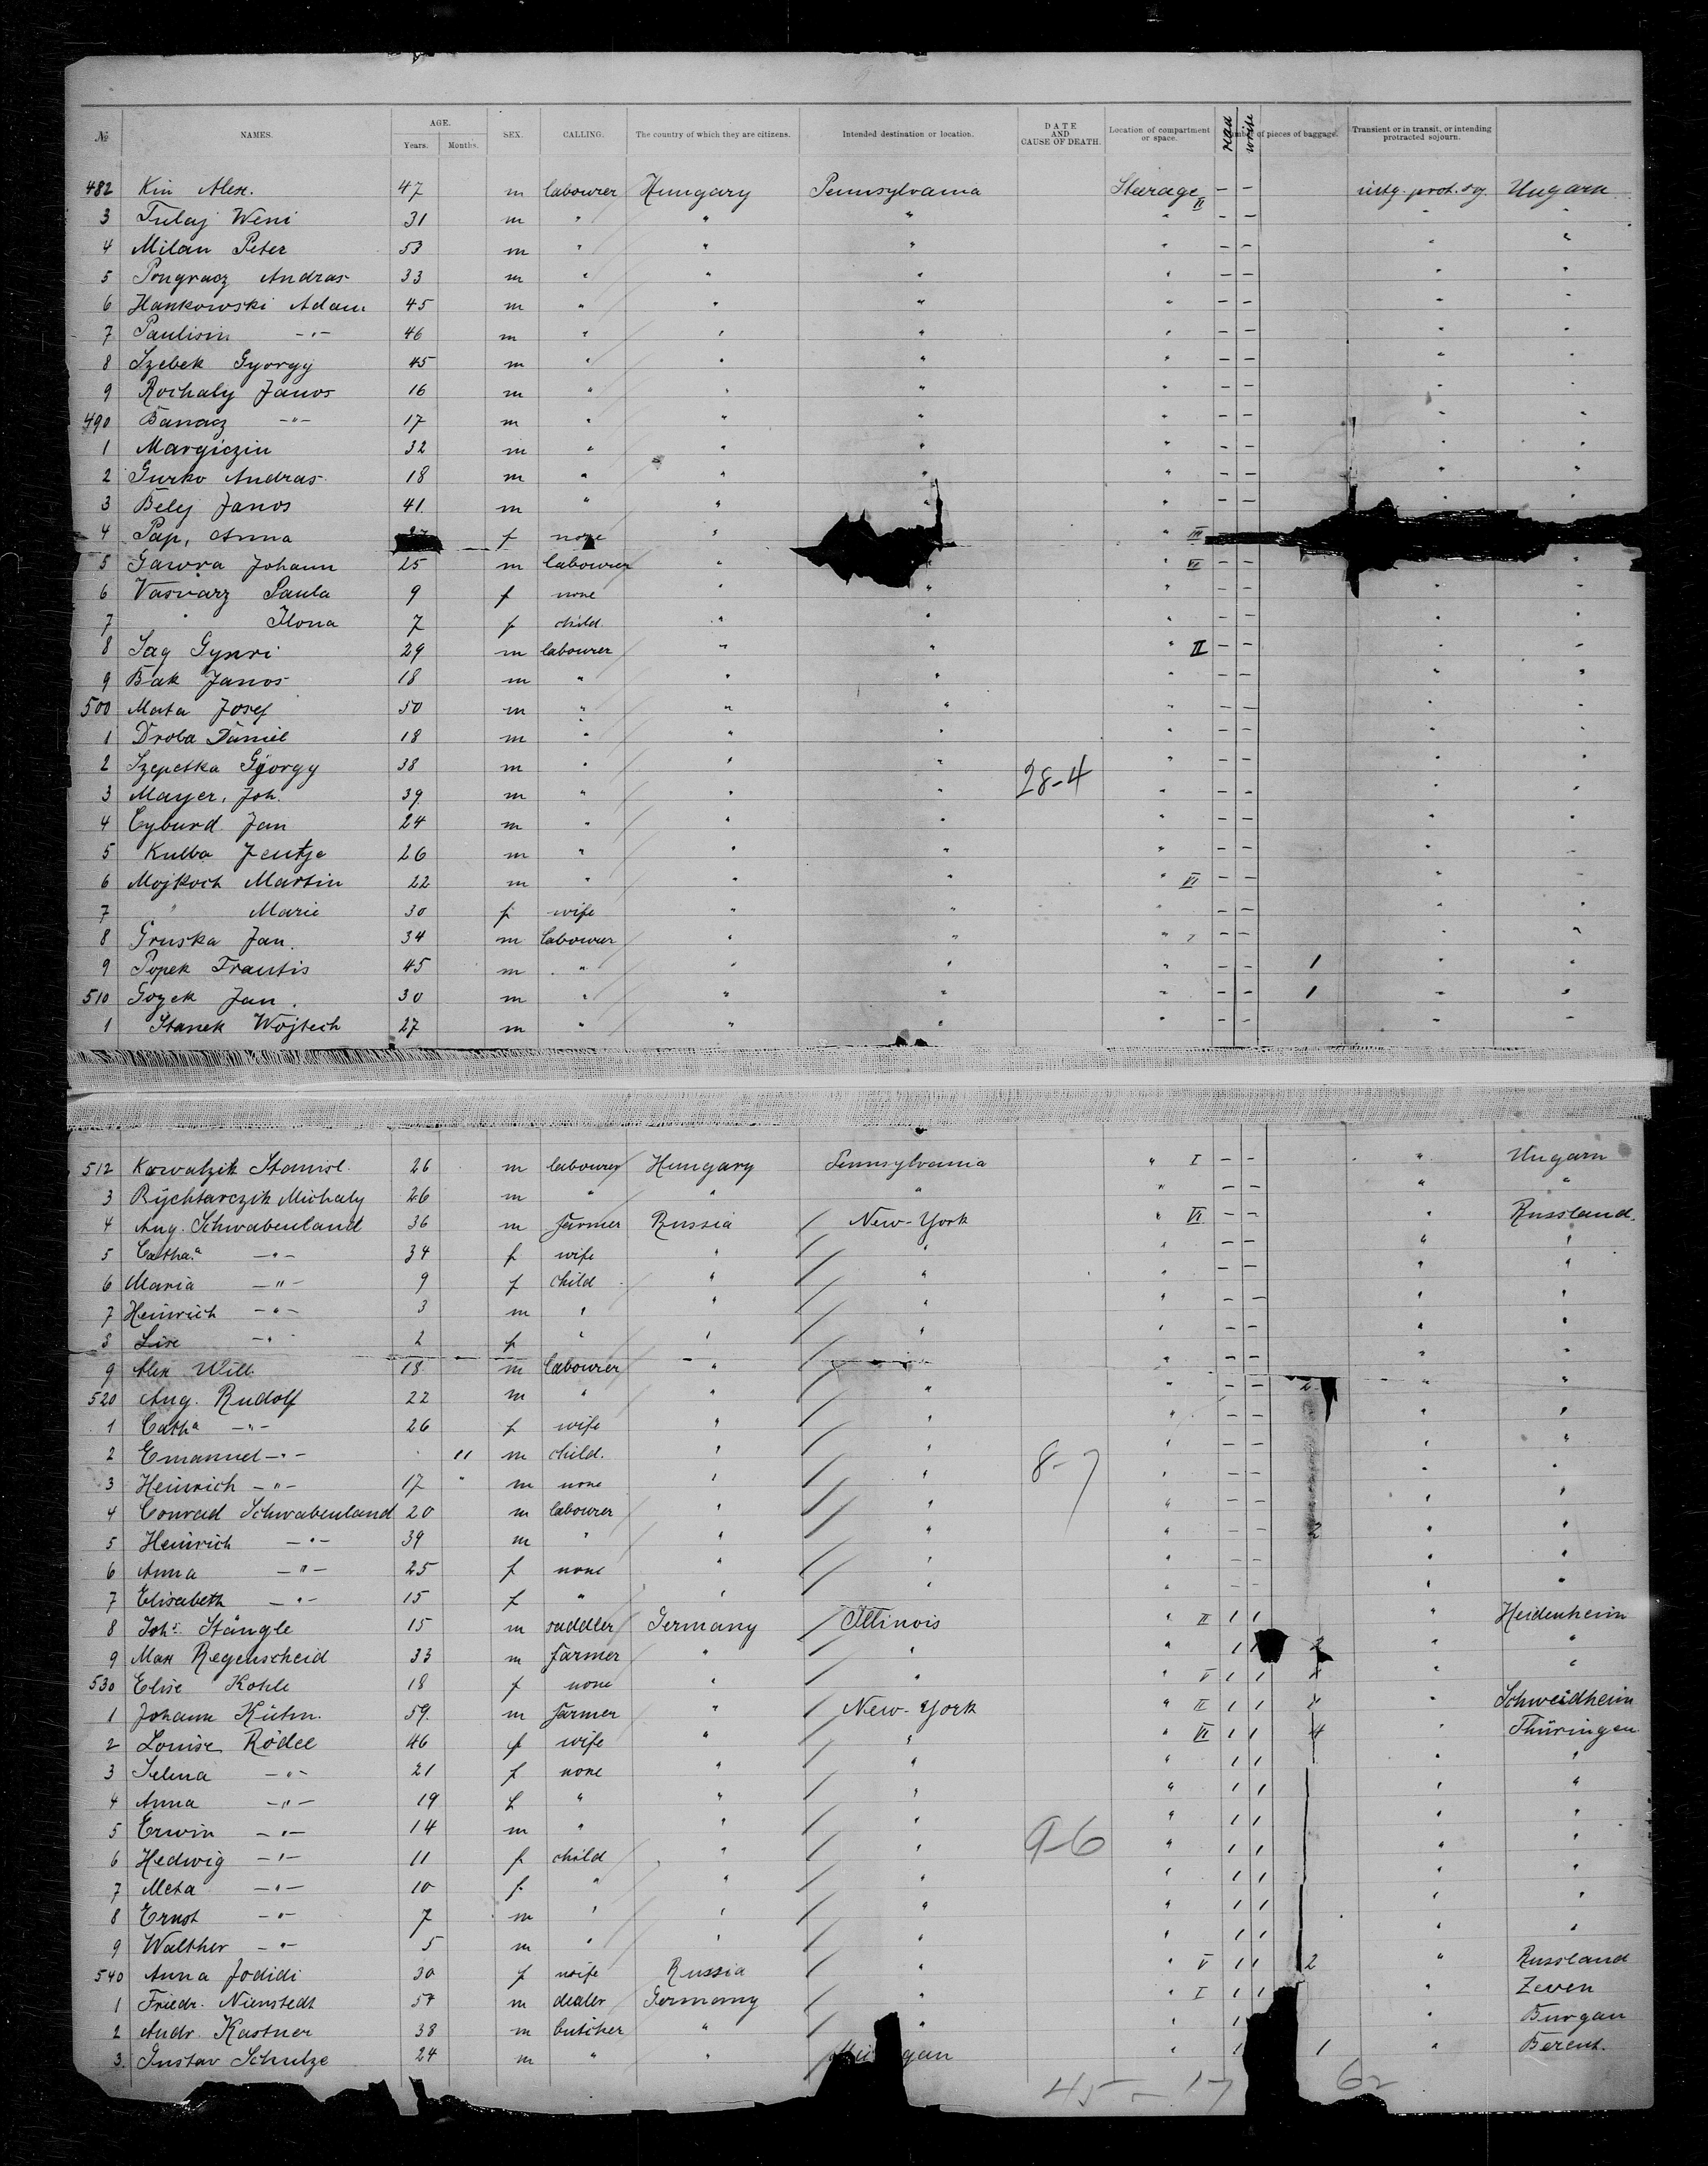 № NAMES. AGE. Years. Months. SEX. CALLING. The country of which they are citizens. Intended destination or location. DATE AND CAUSE OF DEATH. Location of compartment or space. read write Number of pieces of baggage. Transient or in transit, or intending protracted sojourn.
482 Kin Alex. 47 m labourer Hungary Pennsylvania Steerage II – – intg. prot. soj. Ungarn
3 Tulaj Weni 31 m " " " " – – " "
4 Milan Peter 53 m " " " " – – " "
5 Pongracz Andras 33 m " " " " – – " "
6 Hankowski Adam 45 m " " " " – – " "
7 Paulisin –"– 46 m " " " " – – " "
8 Szebek Gyorgy 45 m " " " " – – " "
9 Rochaly Janos 16 m " " " " – – " "
490 Banacz –"– 17 m " " " " – – " "
1 Margiczin 32 m " " " " – – " "
2 Gurko Andras 18 m " " " " – – " "
3 Bely Janos 41 m " " " " – – " "
4 Pap, Anna 27 f none " " III
5 Gawra Johann 25 m labourer " " " VI – – "
6 Vasvarz Paula 9 f none " " " – – " "
7 " Ilona 7 f child " " " – – " "
8 Sag Gynri 29 m labourer " " " II – – " "
9 Bak Janos 18 m " " " " – – " "
500 Mata Josef 50 m " " " " – – " "
1 Droba Daniel 18 m " " " " – – " "
2 Szepetka Gyorgy 38 m " " " 28-4 " – – " "
3 Mayer, Joh. 39 m " " " " – – " "
4 Cyburd Jan 24 m " " " " – – " "
5 Kulba Jentje 26 m " " " " – – " "
6 Mojkoch Martin 22 m " " " " VI – – " "
7 " Marie 30 f wife " " " – – " "
8 Gruska Jan. 34 m labourer " " " I – – " "
9 Popek Frantis 45 m " " " " – – 1 " "
510 Gozek Jan. 30 m " " " " – – 1 " "
1 Stanek Wojtech 27 m " " " " – – " "
512 Kowalzik Stanisl. 26 m labourer Hungary Pennsylvania " I – – " Ungarn
3 Rychtarczik Michaly 26 m " " " " – – " "
4 Aug. Schwabenland 36 m farmer Russia New-York " VI – – " Russland.
5 Catha. –"– 34 f wife " " " – – " "
6 Maria –"– 9 f child " " " – – " "
7 Heinrich –"– 3 m " " " " – – " "
8 Lise –"– 2 f " " " " – – " "
9 Alex Will. 18 m labourer " " " – – " "
520 Aug. Rudolf 22 m " " " " – – 2 " "
1 Catha –"– 26 f wife " " " – – " "
2 Emanuel –"– 11 m child. " " 8-7 " – – " "
3 Heinrich –"– 17 " m none " " " – – " "
4 Conrad Schwabenland 20 m labourer " " " – – " "
5 Heinrich –"– 39 m " " " " – – 2 " "
6 Anna –"– 25 f none " " " – – " "
7 Elisabeth –"– 15 f " " " " – – " "
8 Joh. Stängle 15 m saddler Germany Illinois " II 1 1 " Heidenheim
9 Max Regenscheid 33 m farmer " " " 1 1 " "
530 Elise Kohle 18 f none " " " V 1 1 " "
1 Johann Kühn. 59. m farmer " New-York " II 1 1 " Schweidheim
2 Louise Rödel 46 f wife " " " VI 1 1 4 " Thüringen
3 Selma –"– 21 f none " " " 1 1 " "
4 Anna –"– 19 f " " " " 1 1 " "
5 Erwin –"– 14 m " " " 9-6 " 1 1 " "
6 Hedwig –"– 11 f child " " " 1 1 " "
7 Meta –"– 10 f " " " " 1 1 " "
8 Ernst –"– 7 m " " " " 1 1 " "
9 Walther –"– 5 m " " " " 1 1 " "
540 Anna Jodidi 30 f wife Russia " " V 1 1 2 " Russland
1 Friedr. Nienstedt 54 m dealer Germany " " I 1 1 " Zeven
2 Andr. Kastner 38 m butcher " " " 1 " Burgau
3. Gustav Schulze 24 m " " " 1 1 " Berent.
45 – 17 62